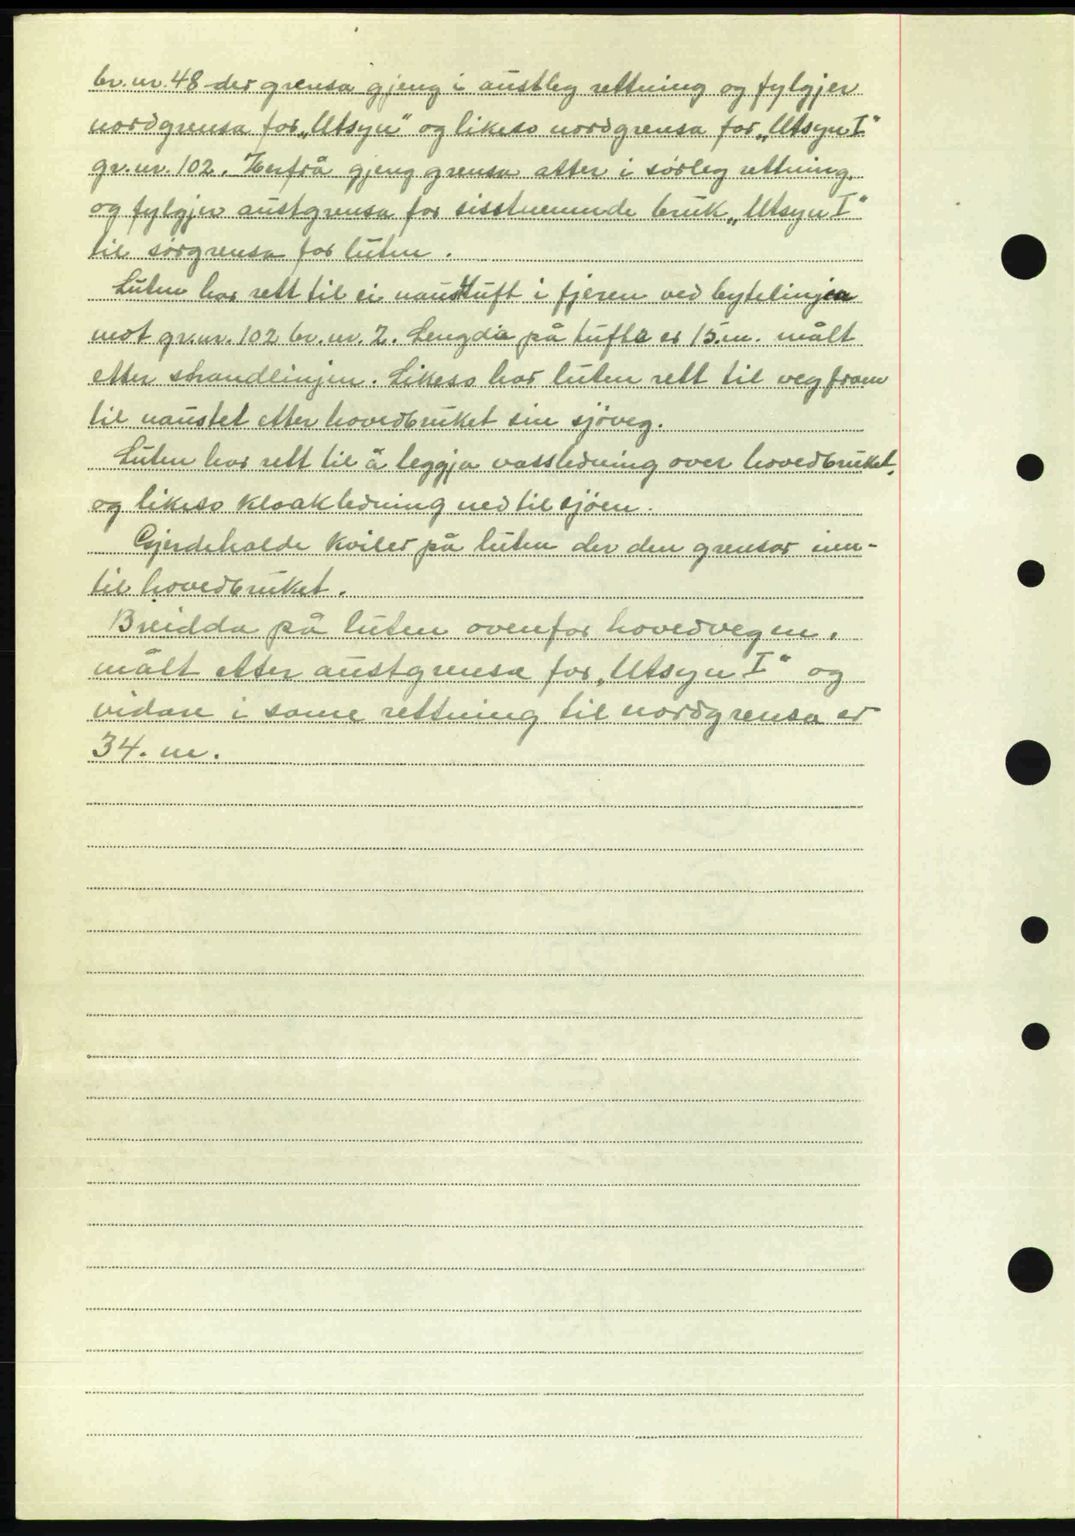 br. nr. 48 der grensa gjeng i austleg rettning og fylgjer
nordgrensa for „Utsyn" og likeso nordgrensa for „Utsyn I"
gr. nr. 102. Herfrå gjeng grensa atter i sørleg rettning,
og fylgjer austgrensa for sisstnemnde bruk „Utsyn I"
til sørgrensa for luten.
Luten har rett til ei nausttuft i fjøren ved bytelinjen
mot gr. nr. 102 br. nr. 2. Lengdia på tufta er 15. m. målt
etter strandlinjen. Likeso har luten rett til veg fram
til naustet etter hovedbruket sin sjöveg.
Luten har rett til å leggja vassledning over hovedbruket,
og likeso kloakledning ned til sjöen.
Gjerdehalde kviler på luten der den grensar inn-
til hovedbruket.
Breidda på luten ovenfor hovedvegen,
målt etter austgrensa for „Utsyn I" og
vidare i same rettning til nordgrensa er
34. m.